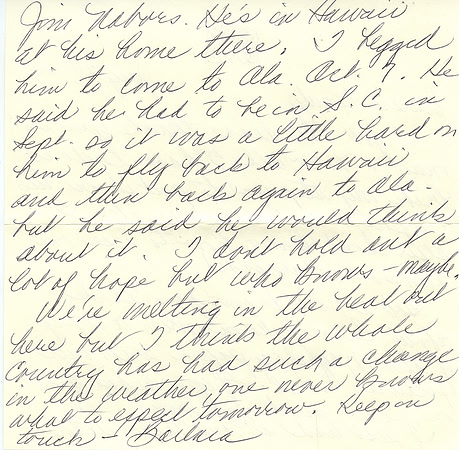 Jim Nabors. He's in Hawaii
at his home there. I begged
him to come to Ala. Oct. 7. He
said he had to be in S.C. in
Sept. so it was a little hard on
him to fly back to Hawaii
and then back again to Ala.
but he said he would think
about it. I don't hold out a
lot of hope but who knows - maybe.
We're melting in the heat out
here but I think the whole
country has had such a change
in the weather one never knows
what to expect tomorrow. Keep in
touch - Barbara